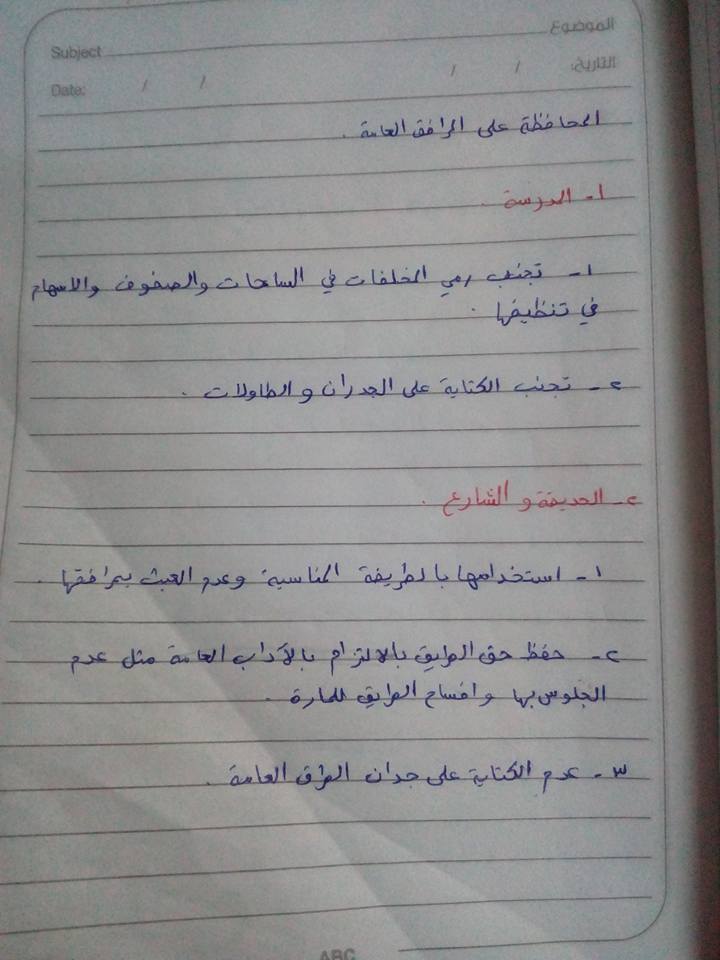 الموضوع
Subject
التاريخ: / /
Date: / /
المحافظة على المرافق العامة .
١- المدرسة .
١- تجنب رمي المخلفات في الساحات والصفوف والاسهام
في تنظيفها .
٢- تجنب الكتابة على الجدران و الطاولات .
٢- الحديقة و الشارع .
١- استخدامها بالطريقة المناسبة وعدم العبث بمرافقها .
٢- حفظ حق الطريق بالالتزام بالآداب العامة مثل عدم
الجلوس بها وافساح الطريق للمارة .
٣- عدم الكتابة على جدان الطرق العامة .
ABC